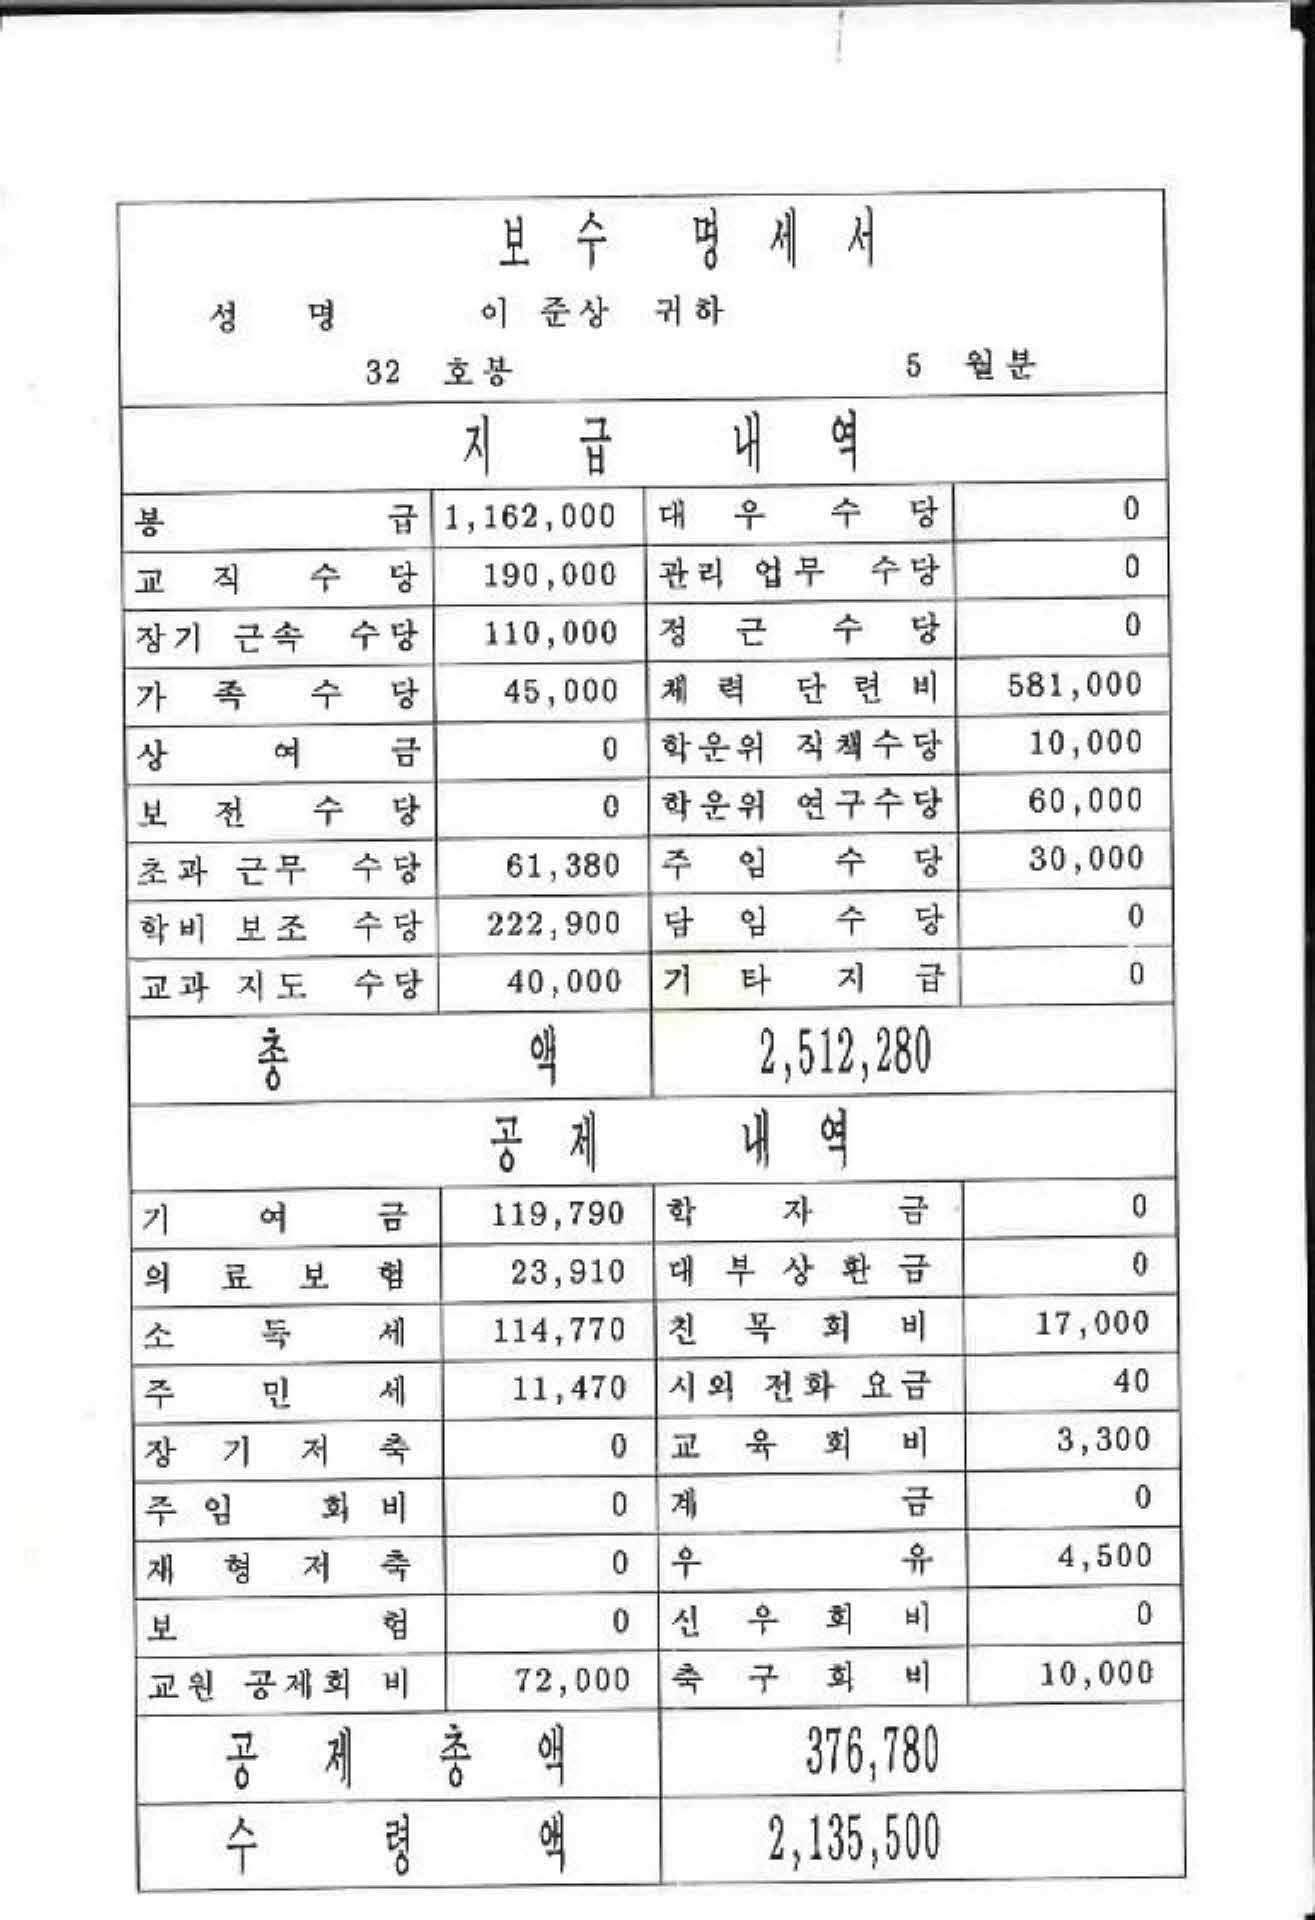 보수 명세서
성명 이 준상 귀하
32 호봉 5 월분
지급 내역
봉급 1,162,000 대우수당 0
교직수당 190,000 관리업무수당 0
장기근속수당 110,000 정근수당 0
가족수당 45,000 체력단련비 581,000
상여금 0 학운위 직책수당 10,000
보전수당 0 학운위 연구수당 60,000
초과근무수당 61,380 주임수당 30,000
학비보조수당 222,900 담임수당 0
교과지도수당 40,000 기타지급 0
총액 2,512,280
공제 내역
기여금 119,790 학자금 0
의료보험 23,910 대부상환금 0
소득세 114,770 친목회비 17,000
주민세 11,470 시외 전화 요금 40
장기저축 0 교육회비 3,300
주임회비 0 계금 0
재형저축 0 우유 4,500
보험 0 신우회비 0
교원 공제회비 72,000 축구회비 10,000
공제총액 376,780
수령액 2,135,500